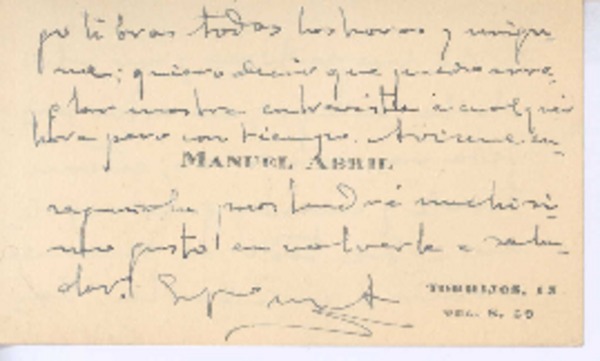 go libras todas las horas y ningu-
na; quiero decir que puedo arre-
glar nuestra entrevista a cualquier
hora pero con tiempo. Avíseme en-
MANUEL ABRIL
pues tendré muchísi-
mo gusto en volverle a salu-
dar.
TORRIJOS, 13